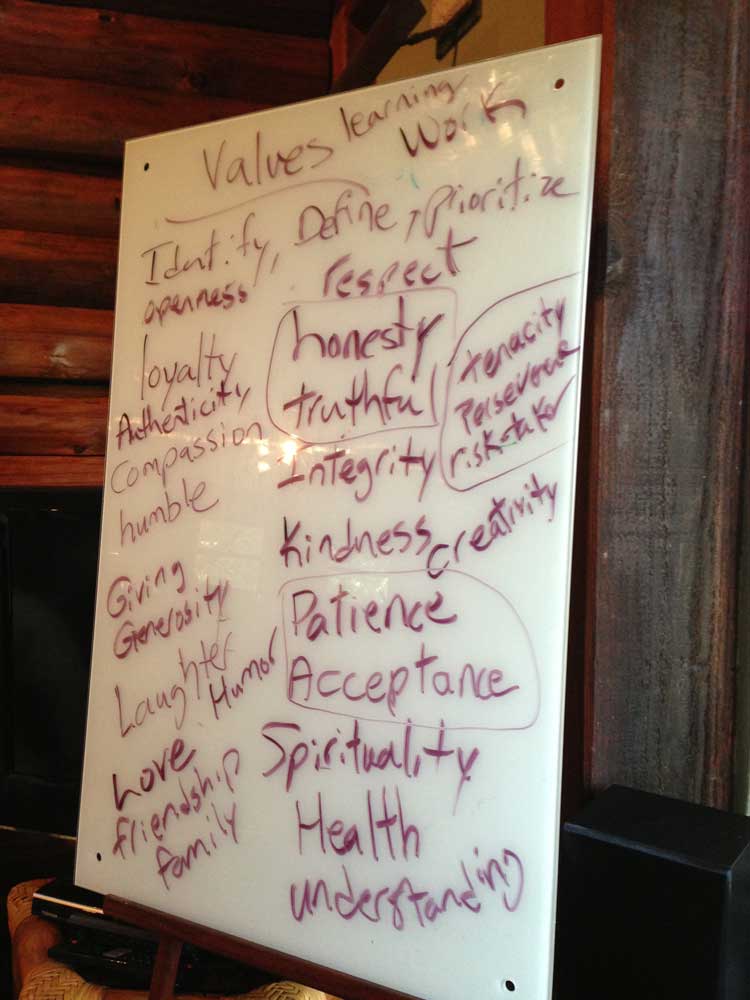 Values learning
work
Identify, Define, prioritize
openness
respect
loyalty
Authenticity
Compassion
humble
Giving
Generosity
Laughter
Humor
Love
friendship
family
honesty
truthful
Integrity
Kindness
Patience
Acceptance
Spirituality
Health
understanding
tenacity
risk-taker
creativity